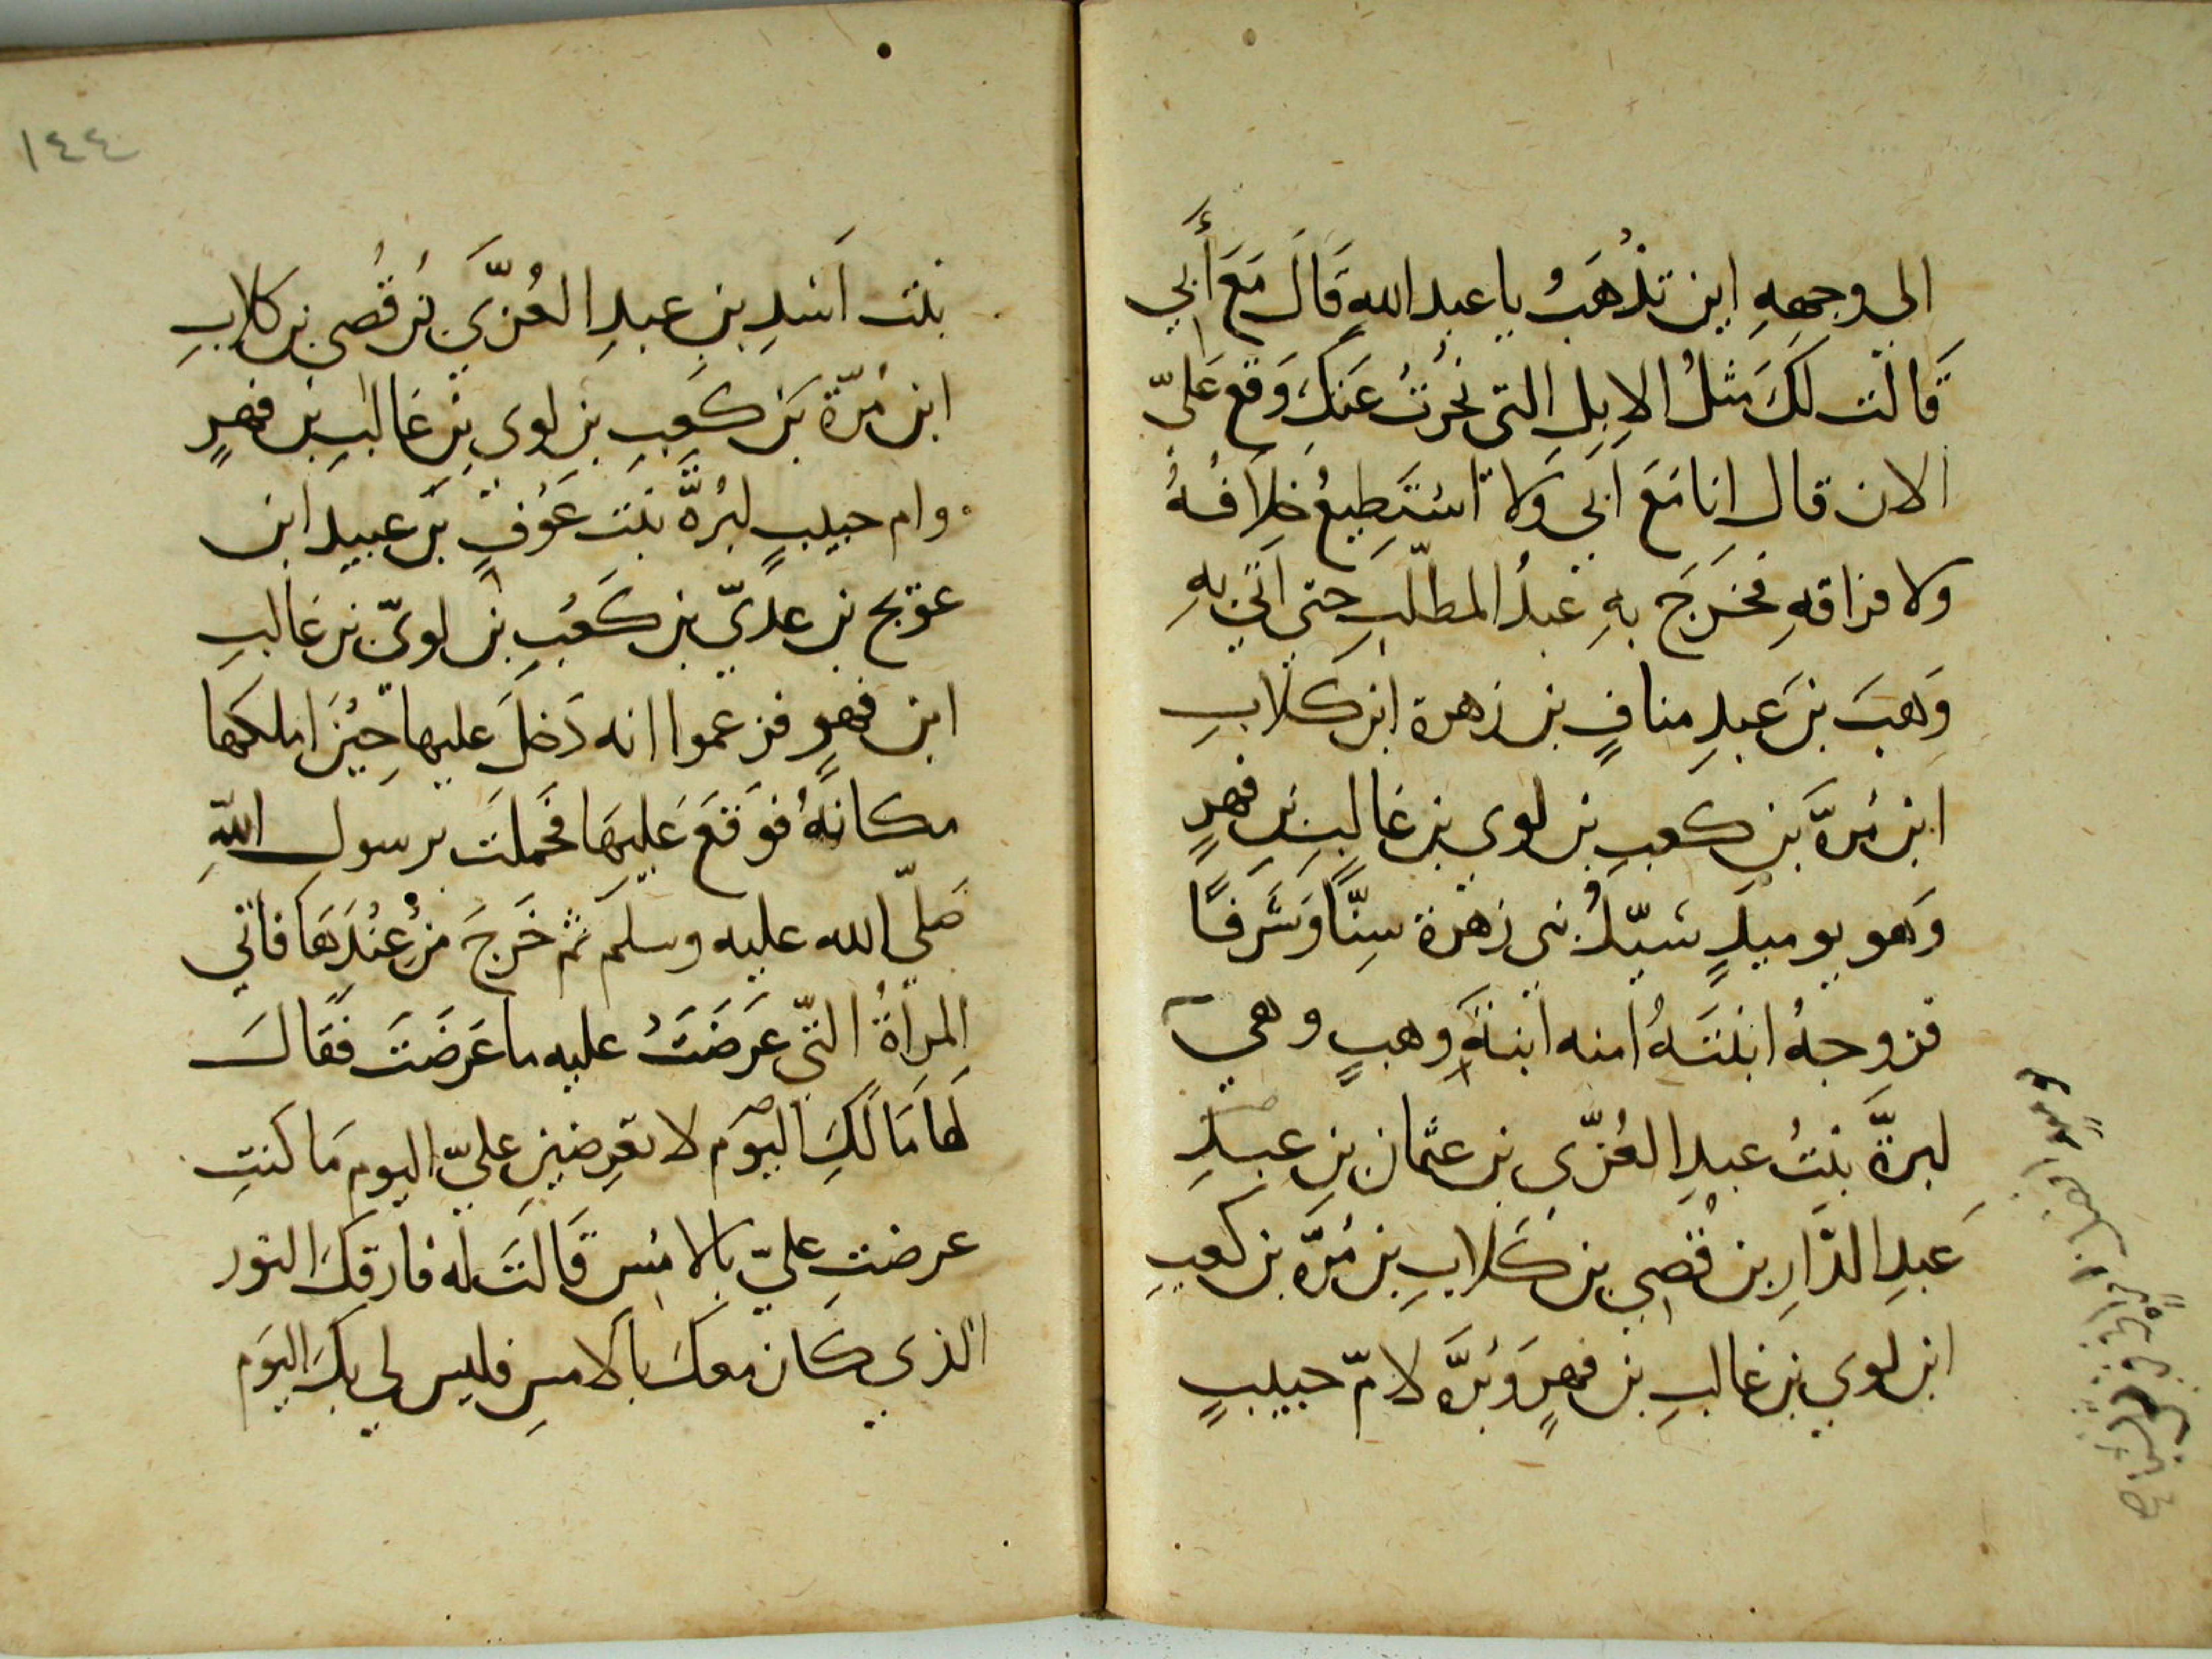 الى وجههِ اين تذْهَبُ يا عبد اللهِ قَالَ مَعَ أَبي
قَالَت لَكَ مثلُ الإِبِلِ التي نُحرَتْ عَنكَ وَقع عَليّ
الان قال انا مَعَ ابَي وَلا اسْتَطِيعُ خِلاَفهُ
ولا فراقهِ فخرَجَ بهِ عبدُ المطلّبِ حتى اَتى بهِ
وَهبَ بنَ عَبدِ منافٍ بن زهرة ابن كلابِ
ابن مُرةَّ بن كعبِ بن لوي بن غَالبِ بن فهرٍ
وَهو يوميذٍ سَيّدُ بني زهرة سِنًّا وَشَرفًا
فزوجهُ ابنتَهُ امنه ابنةَ وهبٍ وهي
لبرةَّ بنتُ عبدِ العُزّى بن عثمان بن عبدِ
عَبدِ الدَّارِ بن قُصي بن كَلابِ بن مُرّة بن كعبِ
ابن لوي بن غالبِ بن فهرٍ وَبُرَّه لامّ حبيبٍ
١٤٤
بنت اَسَدِ بنِ عبدِ العُزَّي بن قُصى بن كلابِ
ابن مُرّة بَن كَعبِ بنِ لوي بن غَالبِ بن فهرٍ
وام حبيبٍ لبُرةَّ بنت عَوْفٍ بن عبيد ابن
عويج بن عديّ بن كَعْبِ بن لويّ بن غالبِ
ابن فهرٍ فزعموا انه دَخلَ عليها حِيْنَ املكها
مكانَهُ فوَقعَ عَليهَا فحَملَت برسول اللهِ
صَلّى الله عليه وسلم ثم خَرجَ منْ عِنْدَهَا فاتى
المرأةُ التّي عَرَضَتْ عليه ما عَرَضَتَ فقَالَ
لَهَا مَا لَكِ اليوَم لا تعرِضينِ عليّ اليوم مَا كنتِ
عرضتِ عليّ بالامسِ قَالَتَ له فارقكَ النور
الذي كَان معكَ بالامسِ فليس لي بكَ اليوَم